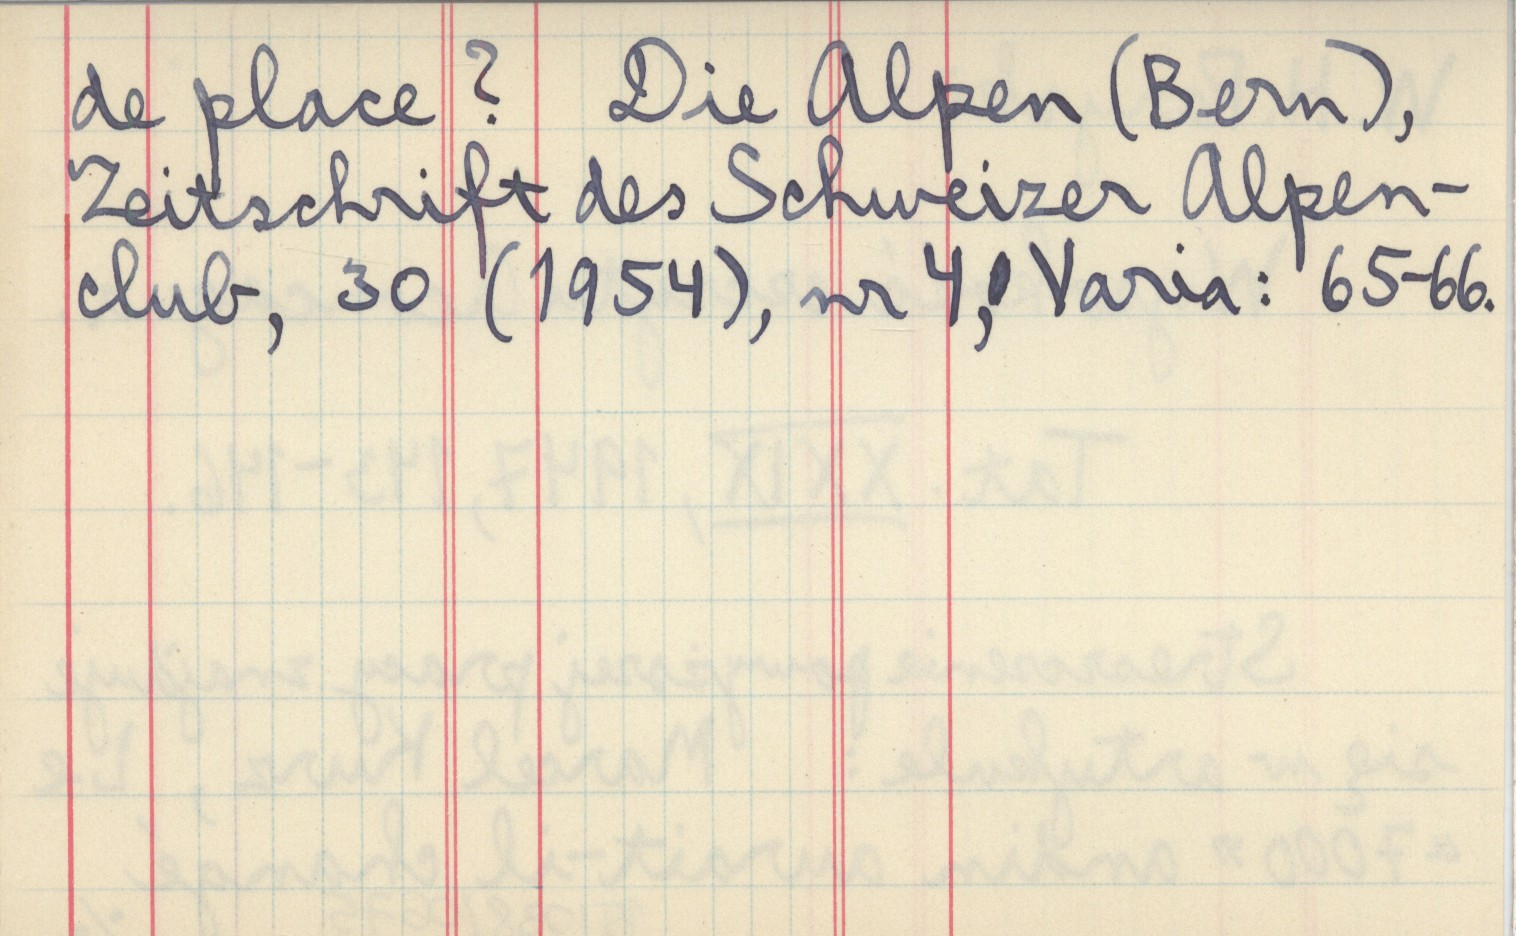 de place? Die Alpen (Bern),
Zeitschrift des Schweizer Alpen-
club, 30 (1954), nr 4, Varia: 65-66.